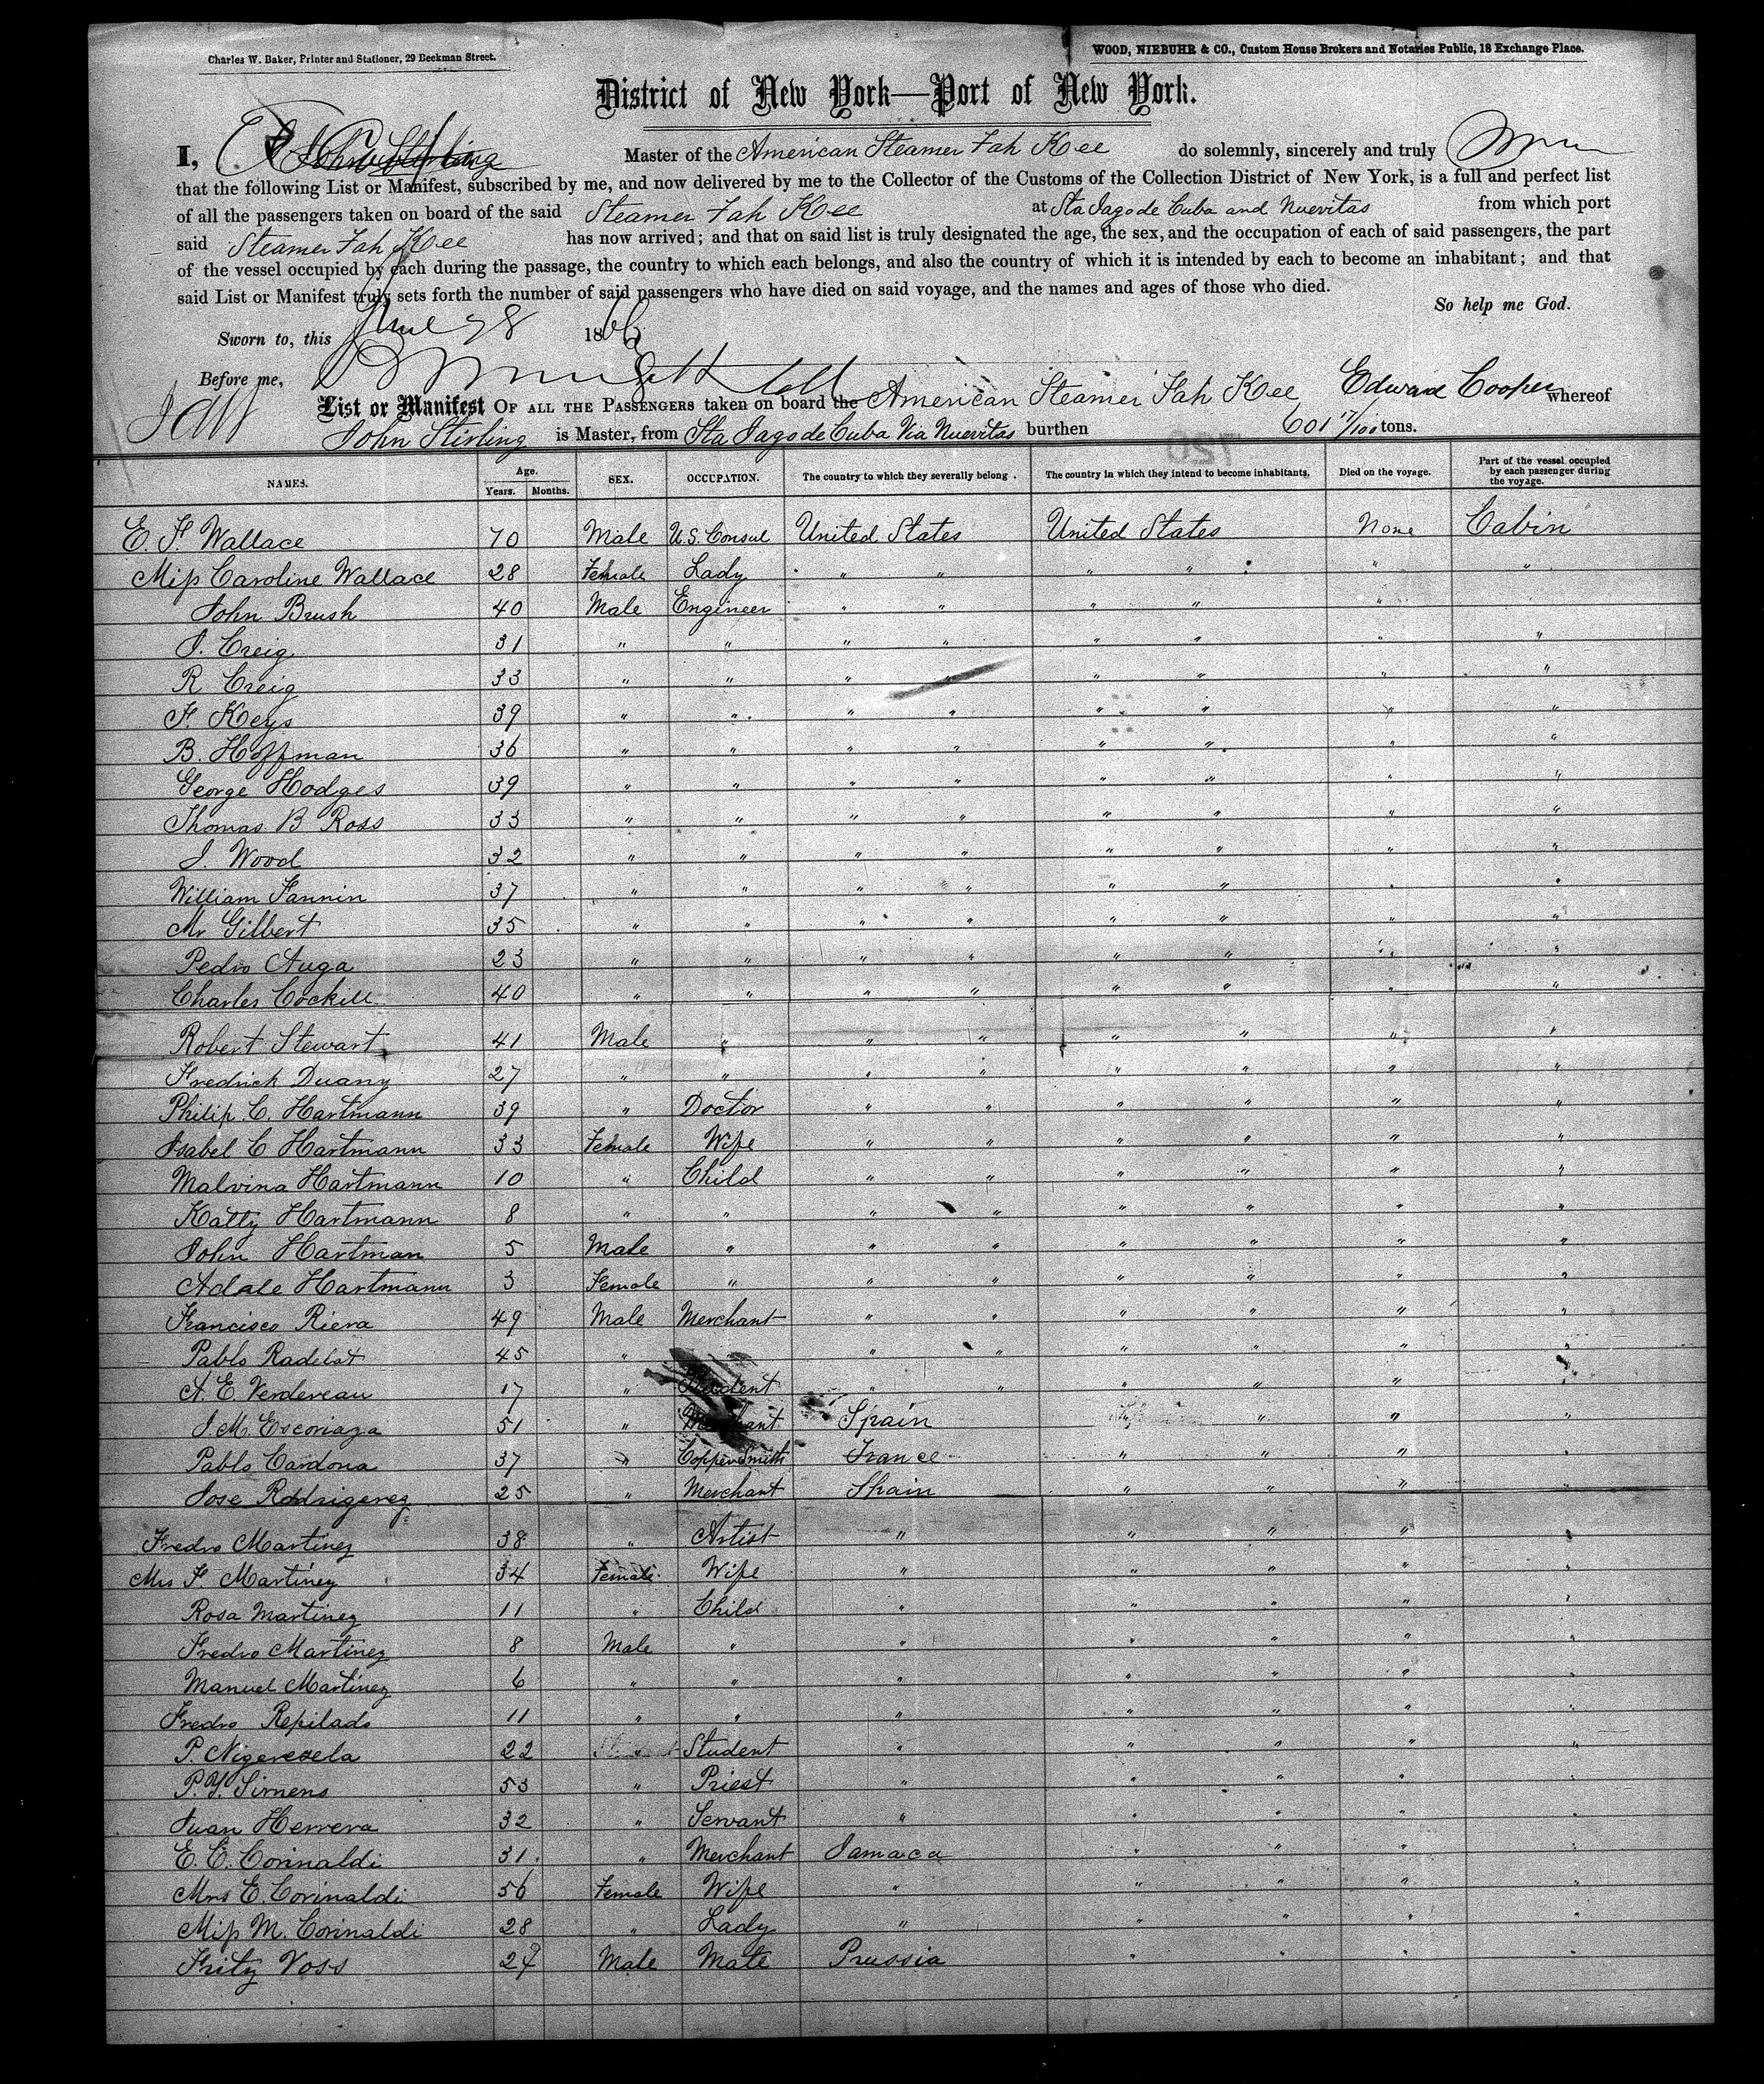 Charles W. Baker, Printer and Stationer, 29 Beekman Street.
WOOD, NIEBUHR & CO., Custom House Brokers and Notaries Public, 18 Exchange Place.
District of New York—Port of New York.
I, Master of the American Steamer Fah Kee do solemnly, sincerely and truly
that the following List or Manifest, subscribed by me, and now delivered by me to the Collector of the Customs of the Collection District of New York, is a full and perfect list
of all the passengers taken on board of the said Steamer Fah Kee at Sta Jago de Cuba and Nuevitas from which port
said Steamer Fah Kee has now arrived; and that on said list is truly designated the age, the sex, and the occupation of each of said passengers, the part
of the vessel occupied by each during the passage, the country to which each belongs, and also the country of which it is intended by each to become an inhabitant; and that
said List or Manifest truly sets forth the number of said passengers who have died on said voyage, and the names and ages of those who died.
So help me God.
Sworn to, this June 28 1866
Before me,
List or Manifest OF ALL THE PASSENGERS taken on board the American Steamer Fah Kee Edward Cooper whereof
John Stirling is Master, from Sta Jago de Cuba Via Nuevitas burthen 601 17/100 tons.
NAMES. Age. Years. Months. SEX. OCCUPATION. The country to which they severally belong. The country in which they intend to become inhabitants. Died on the voyage. Part of the vessel occupied by each passenger during the voyage.
E. F. Wallace 70 Male U.S. Consul United States United States None Cabin
Miss Caroline Wallace 28 Female Lady " " " " " "
John Brush 40 Male Engineer " " " " "
J. Creig 31 " " " " " " " "
R Creig 33 " " " " " " " "
F. Keys 39 " " " " " " " "
B. Hoffman 36 " " " " " " " "
George Hodges 39 " " " " " " " "
Thomas B Ross 33 " " " " " " " "
J. Wood 32 " " " " " " " "
William Fannin 37 " " " " " " " "
Mr Gilbert 35 " " " " " " " "
Pedro Auga 23 " " " " " " " "
Charles Cockill 40 " " " " " " " "
Robert Stewart 41 Male " " " " " " "
Fredrick Duany 27 " " " " " " " "
Philip. C. Hartmann 39 " Doctor " " " " " "
Isabel C Hartmann 33 Female Wife " " " " " "
Malvina Hartmann 10 " Child " " " " " "
Katty Hartmann 8 " " " " " " " "
John Hartman 5 Male " " " " " " "
Adale Hartmann 3 Female " " " " " " "
Francisco Riera 49 Male Merchant " " " " " "
Pablo Radelat 45 " " " " " " "
A. E. Verdereau 17 " Student " " " " " "
J. M. Escoriaza 51 " Merchant Spain " " "
Pablo Cardona 37 " Coppersmith France " " " "
Jose Rodrigerez 25 " Merchant Spain " " " "
Fredro Martinez 38 " Artist " " " " "
Mrs F. Martinez 34 Female Wife " " " " "
Rosa Martinez 11 " Child " " " " "
Fredro Martinez 8 Male " " " " " "
Manuel Martinez 6 " " " " " " "
Fredro Repilado 11 " " " " " " "
P. Nigeresela 22 " Student " " " " "
P. Y. Simens 53 " Priest " " " " "
Juan Herrera 32 " Servant " " " " "
E. E. Corinaldi 31 " Merchant Jamaca " " " "
Mrs E. Corinaldi 56 Female Wife " " " " "
Miss M. Corinaldi 28 " Lady " " " " "
Fritz Voss 24 Male Mate Prussia " " " "